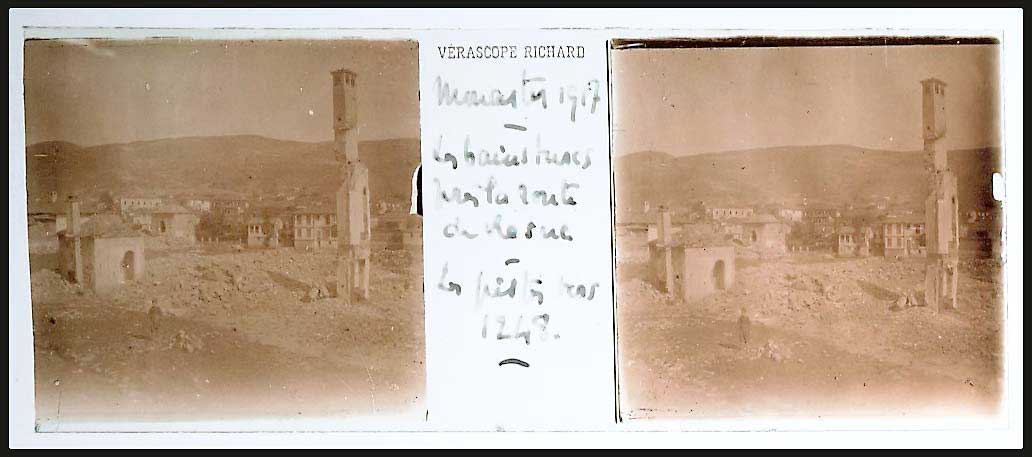 VÉRASCOPE RICHARD
Monastir 1917
Les bains turcs
vers la route
de Resna
Les
1248.